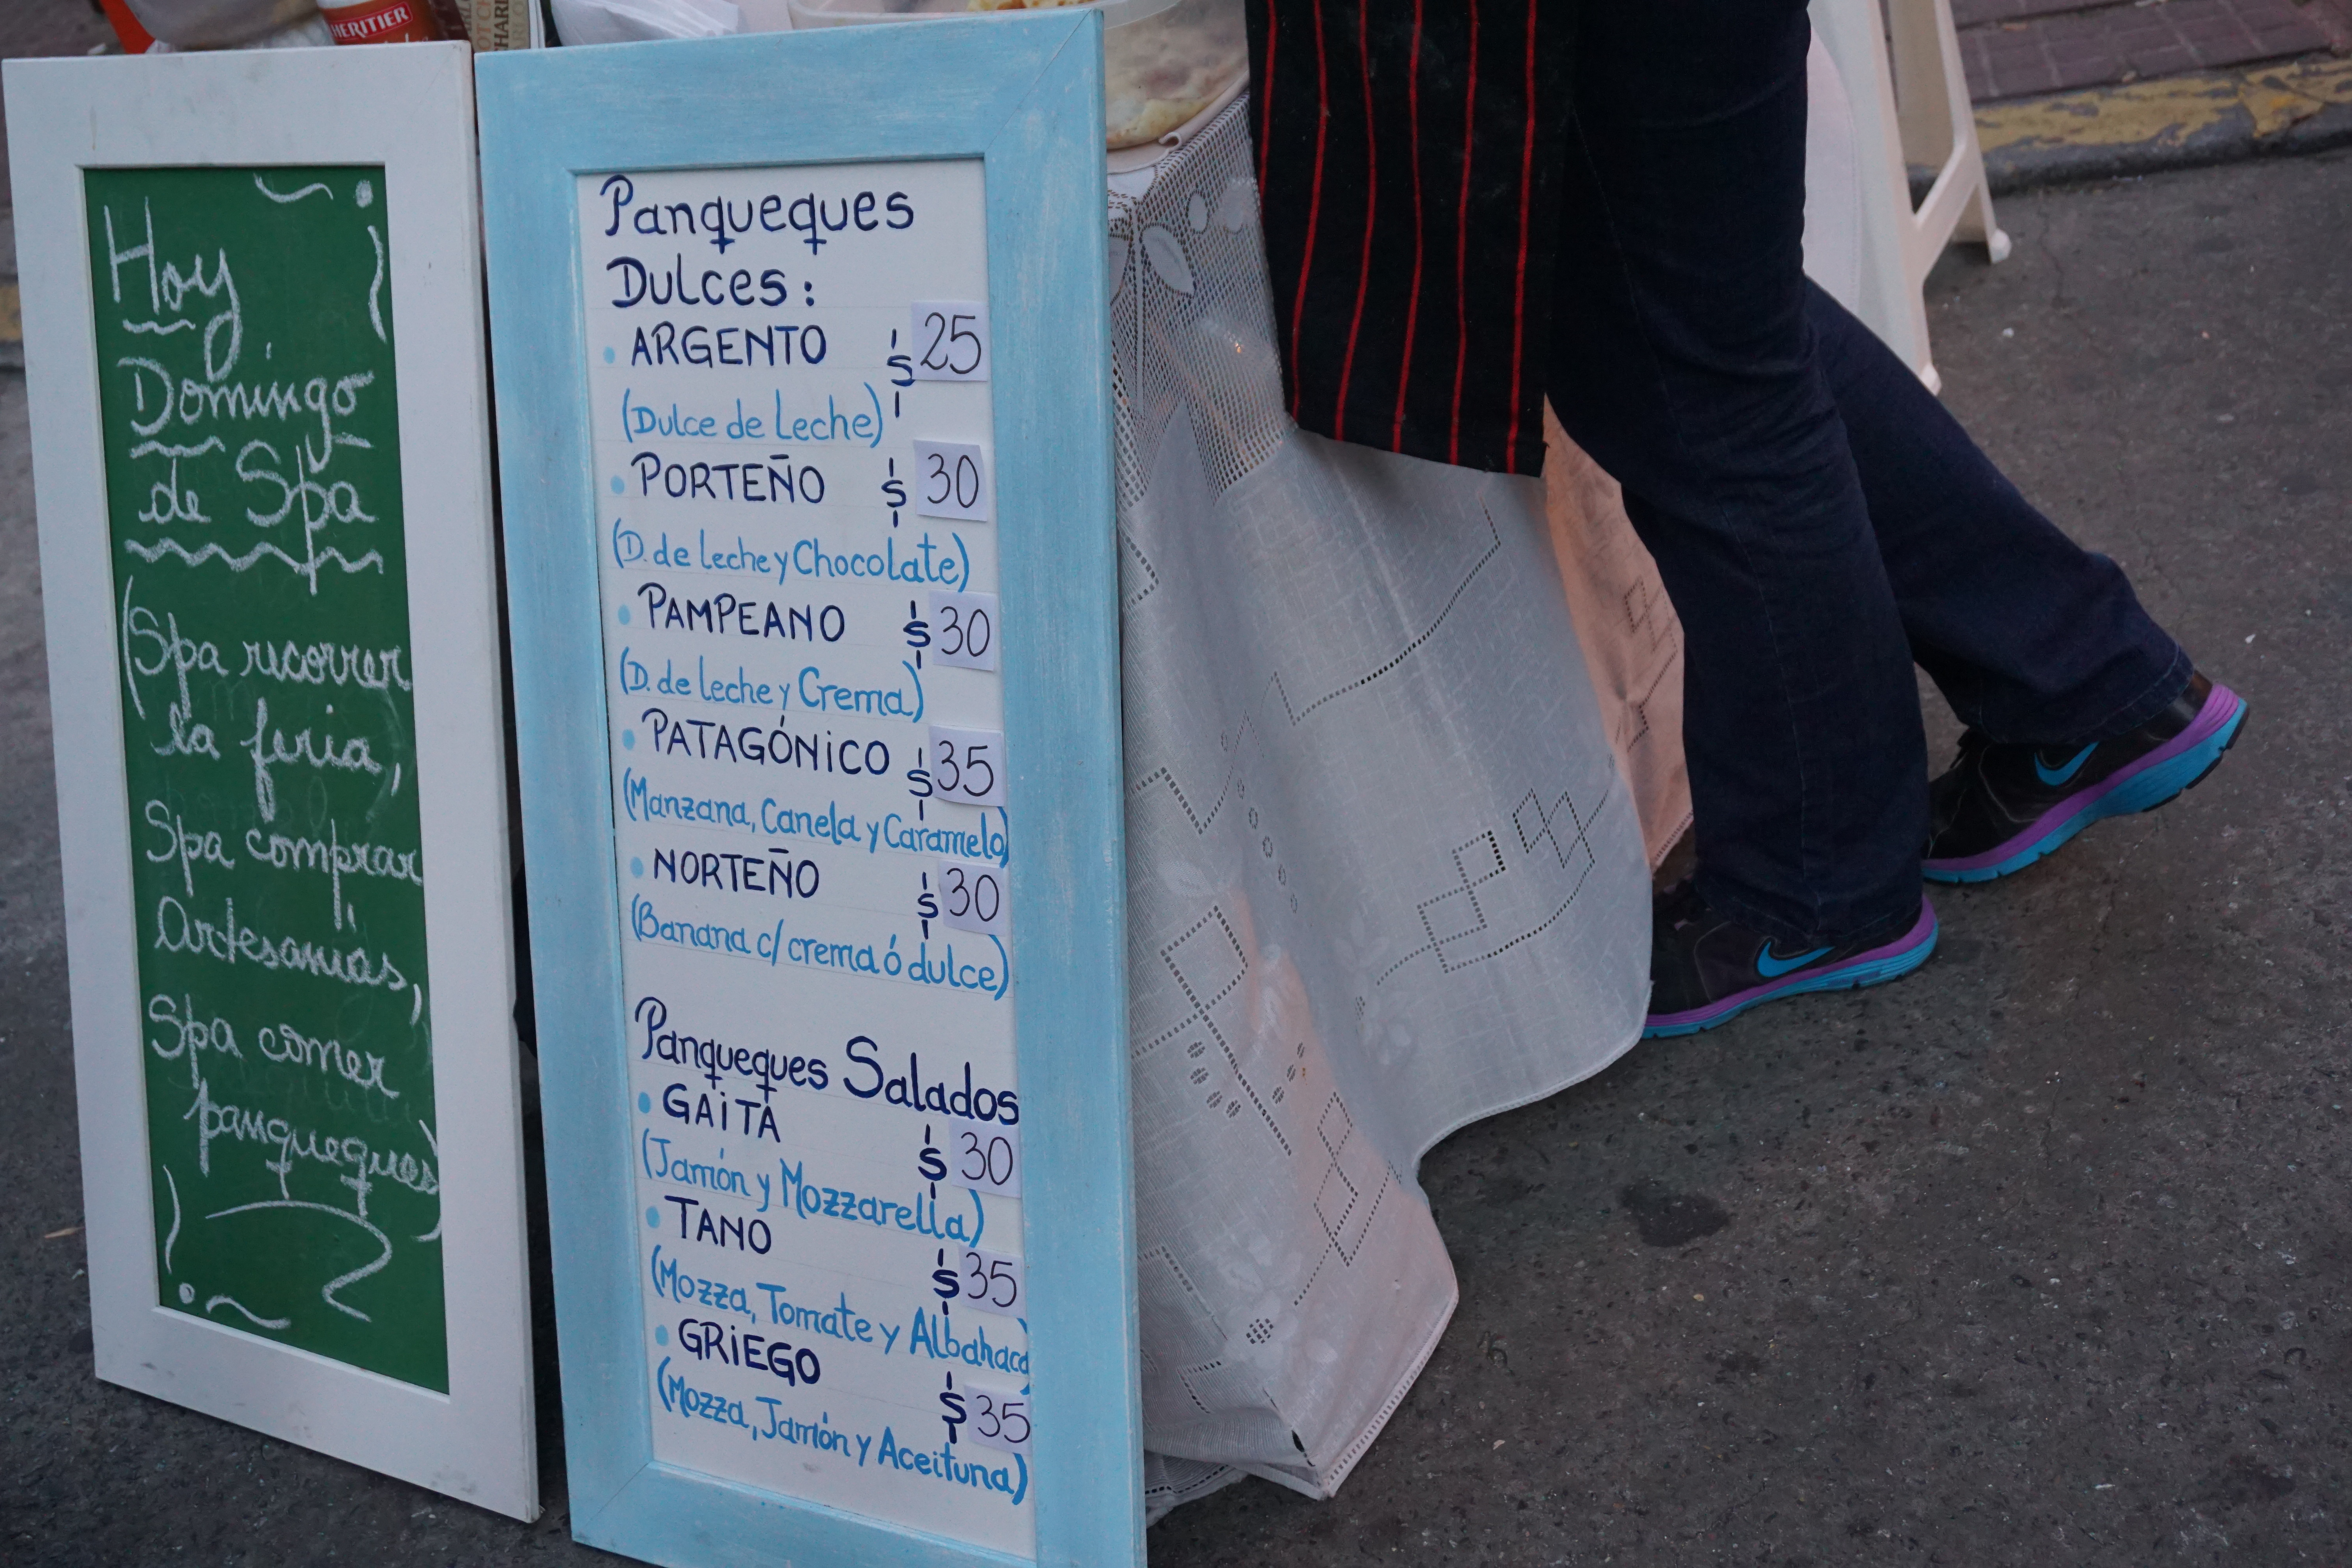 HERITIER
Hoy
Domingo
de Spa
(Spa recorrer
la feria,
Spa comprar
Artesanías,
Spa comer
panqueques)
Panqueques
Dulces:
• ARGENTO $ 25
(Dulce de Leche)
• PORTEÑO $ 30
(D. de leche y Chocolate)
• PAMPEANO $ 30
(D. de leche y Crema)
• PATAGÓNiCO $ 35
(Manzana, Canela y Caramelo)
• NORTEÑO $ 30
(Banana c/ crema ó dulce)
Panqueques Salados
• GAiTA $ 30
(Jamón y Mozzarella)
• TANO $ 35
(Mozza, Tomate y Albahaca)
• GRiEGO $ 35
(Mozza, Jamón y Aceituna)